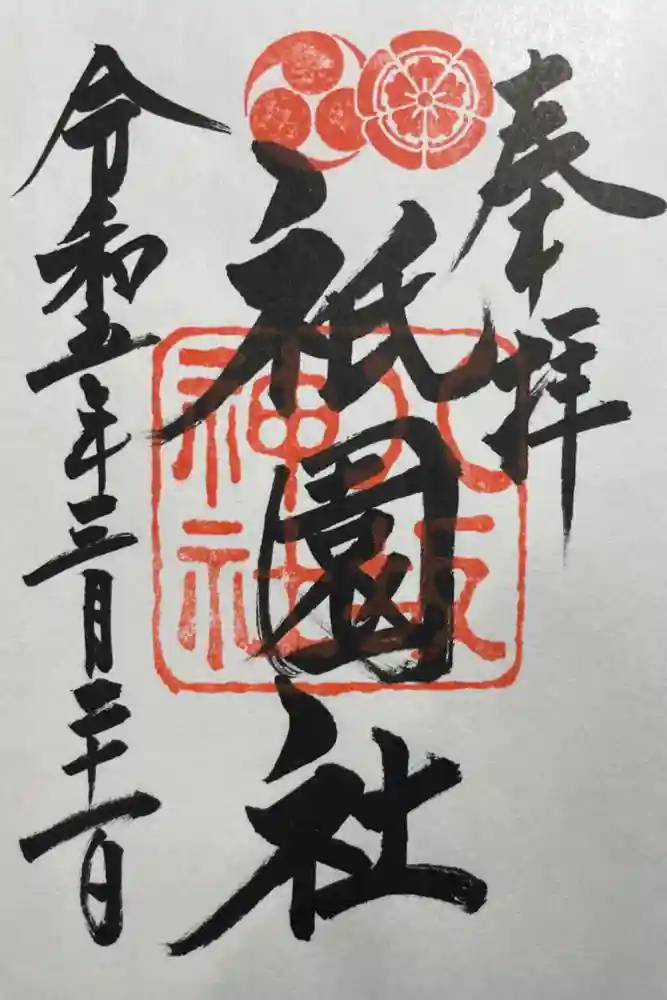 奉拝
祇園社
八坂
神社
令和五年三月二十一日